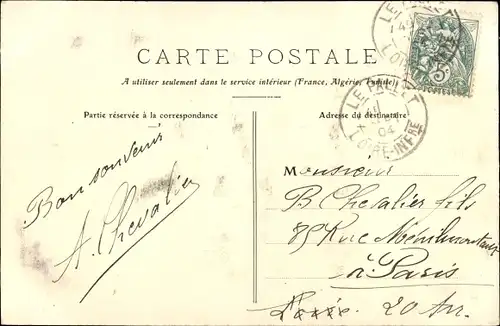 CARTE POSTALE
A utiliser seulement dans le service intérieur (France, Algérie, Tunisie)
Partie réservée à la correspondance
Adresse du destinataire
LE PALLET
04
LOIRE-INFRE
Bon souvenir
A. Chevalier
Monsieur
B. Chevalier fils
85 Rue Ménilmontant
à Paris
20 Arr.